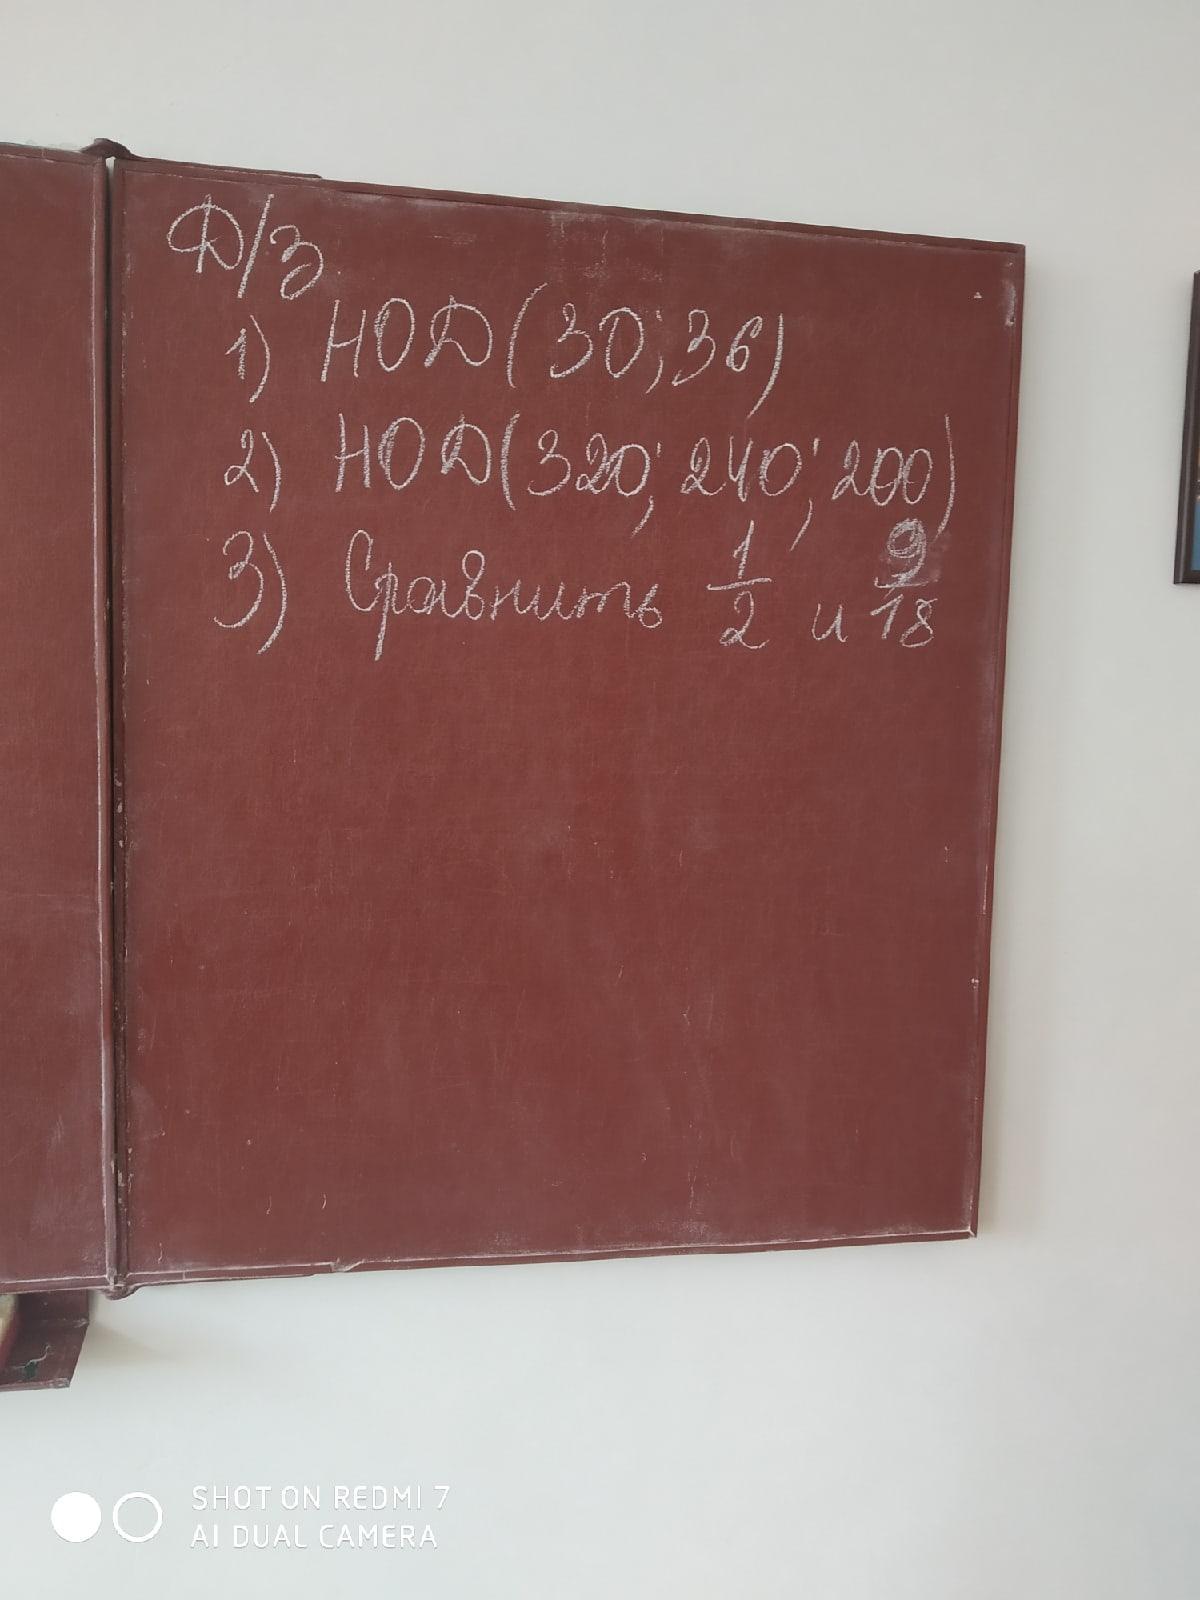 Д/з
1) НОД(30; 36)
2) НОД(320; 240; 200)
3) Сравнить 1/2 и 9/18
SHOT ON REDMI 7
AI DUAL CAMERA